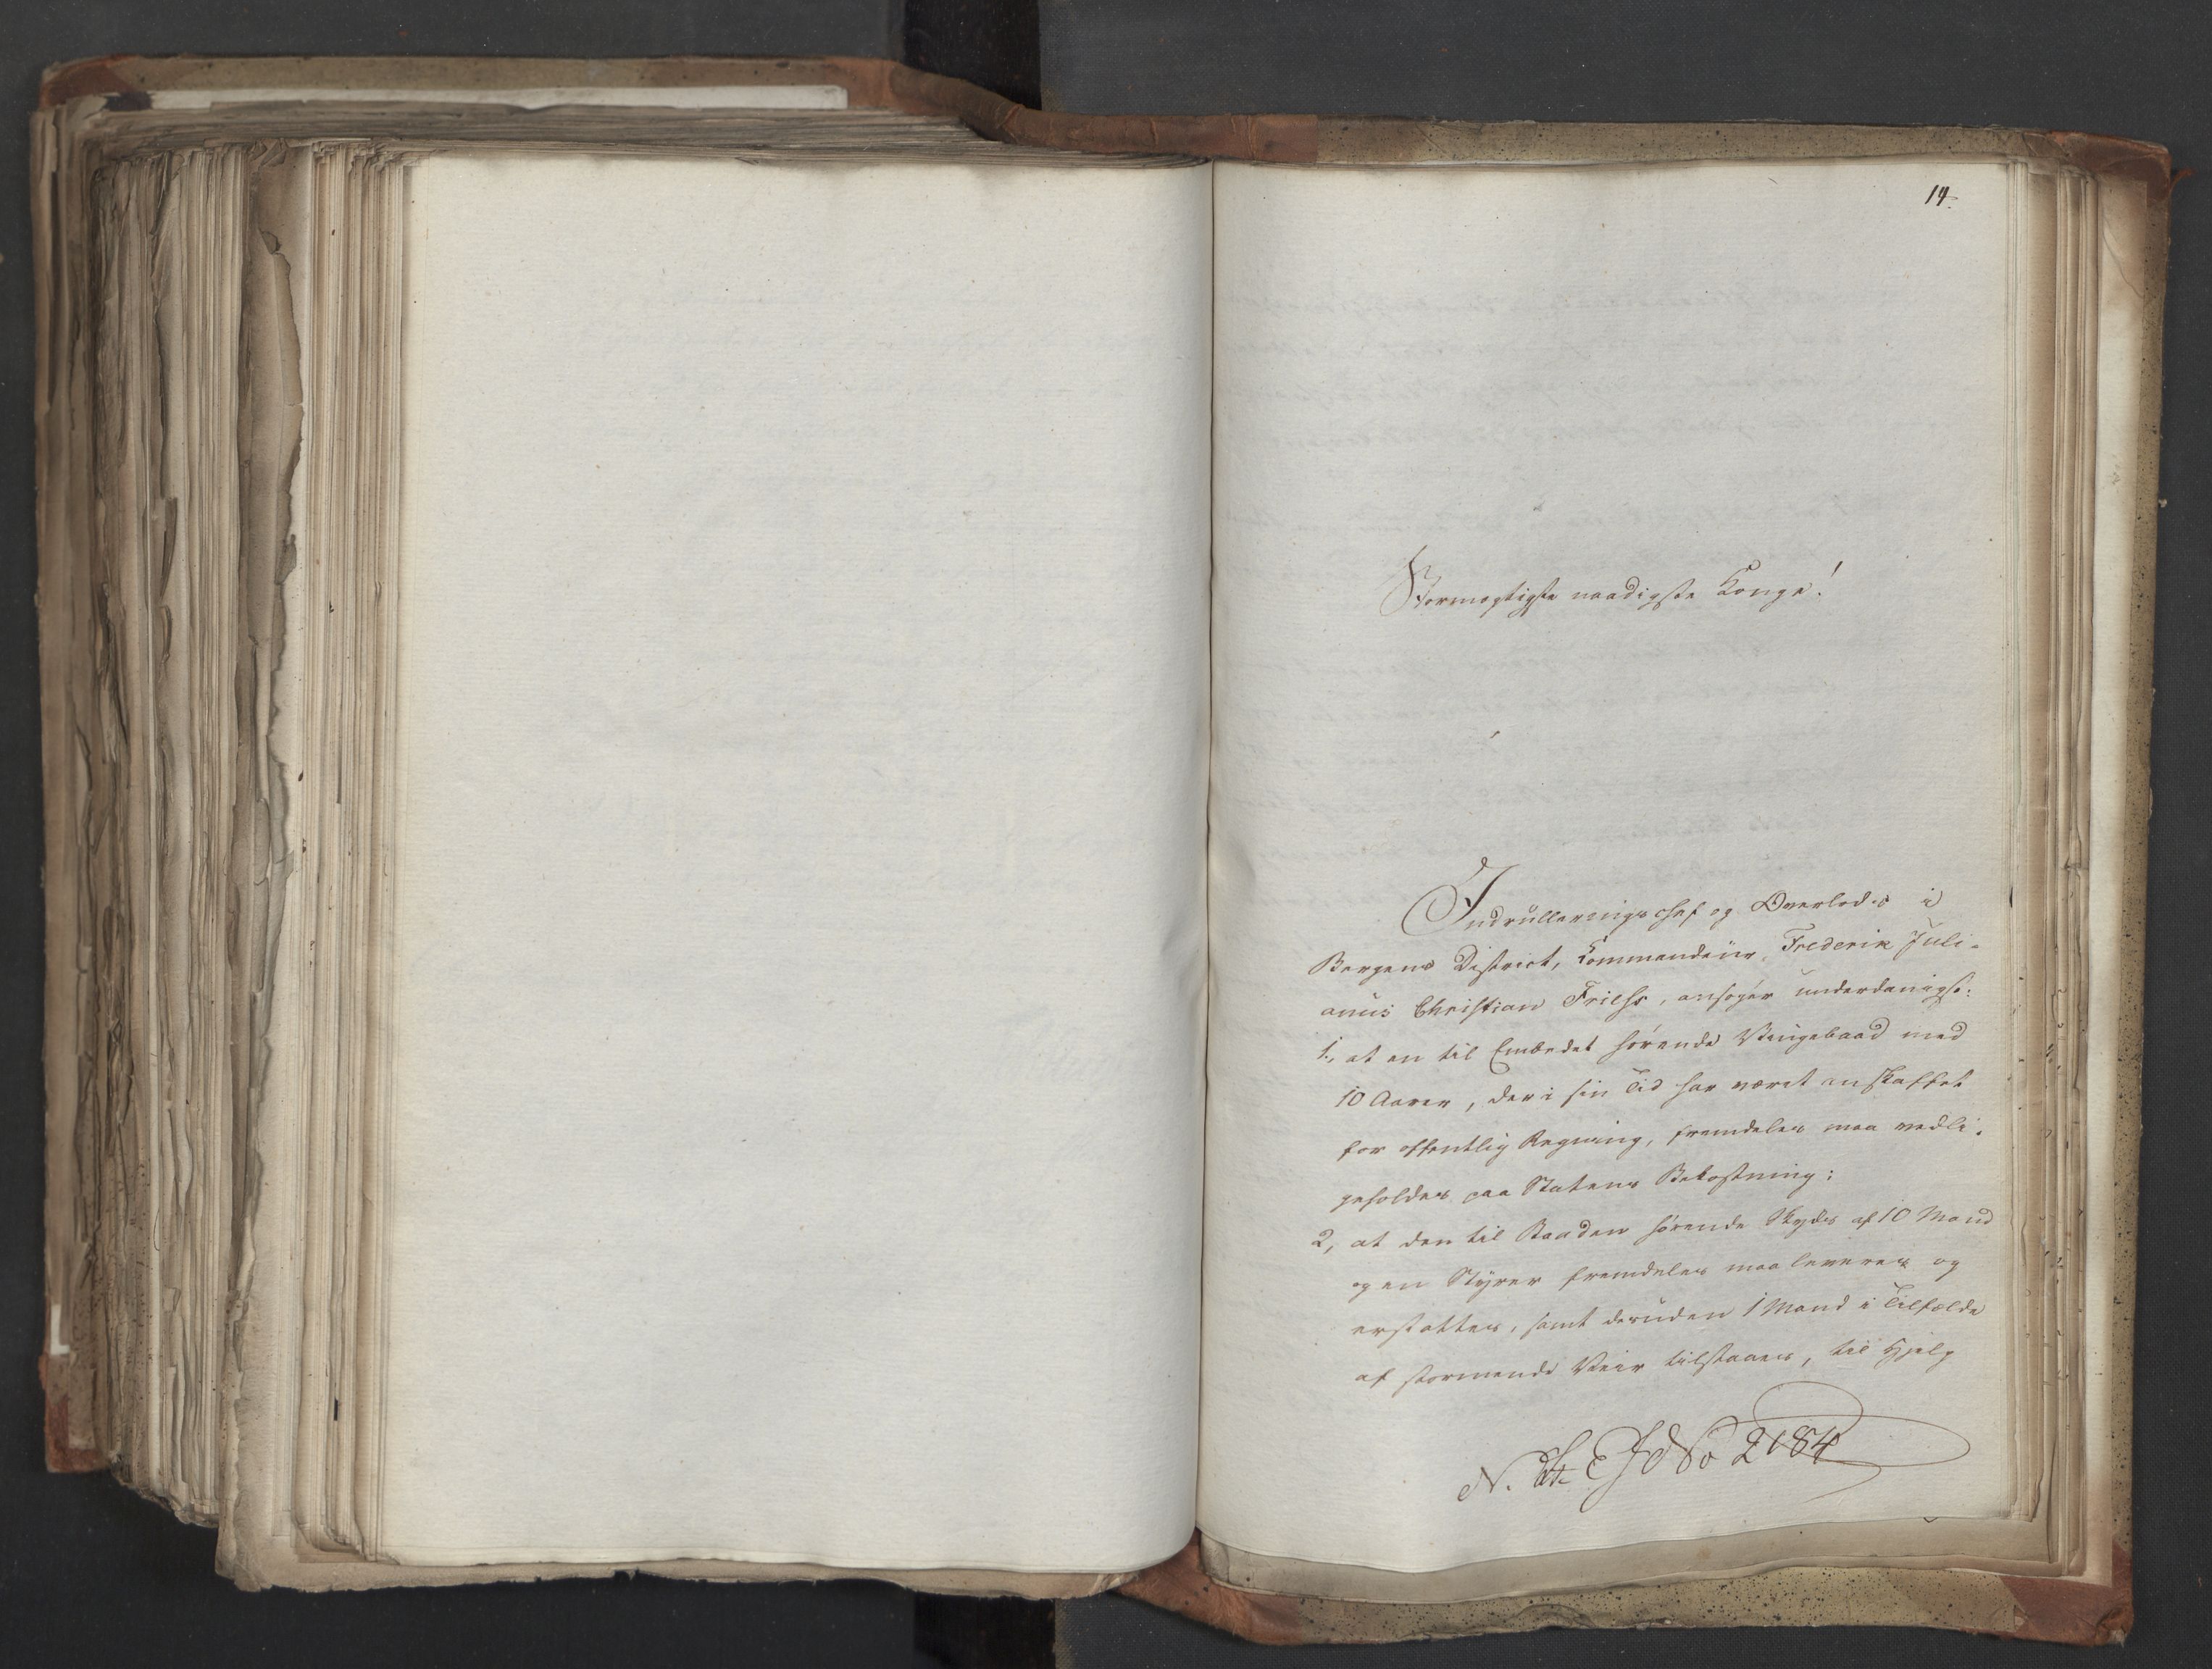 14.
Stormægtigste naadigste Konge!
Indrulleringschef og Overlods i
Bergens District, Commandeür, Frederik Juli-
anus Christian Friess, ansøger underdanigst:
1., at en til Embedet hørende Slüpebaad med
10 Aarer, der i sin Tid har været anskaffet
for offentlig Regning, fremdeles maa vedli-
geholdes paa Statens Bekostning;
2, at den til Baaden hørende Skyds af 10 Mand
og en Stÿrer fremdeles maa leveres og
erstattes, samt desuden 1 Mand i Tilfælde
af stormende Veir tilstaaes, til Hjelp
2184